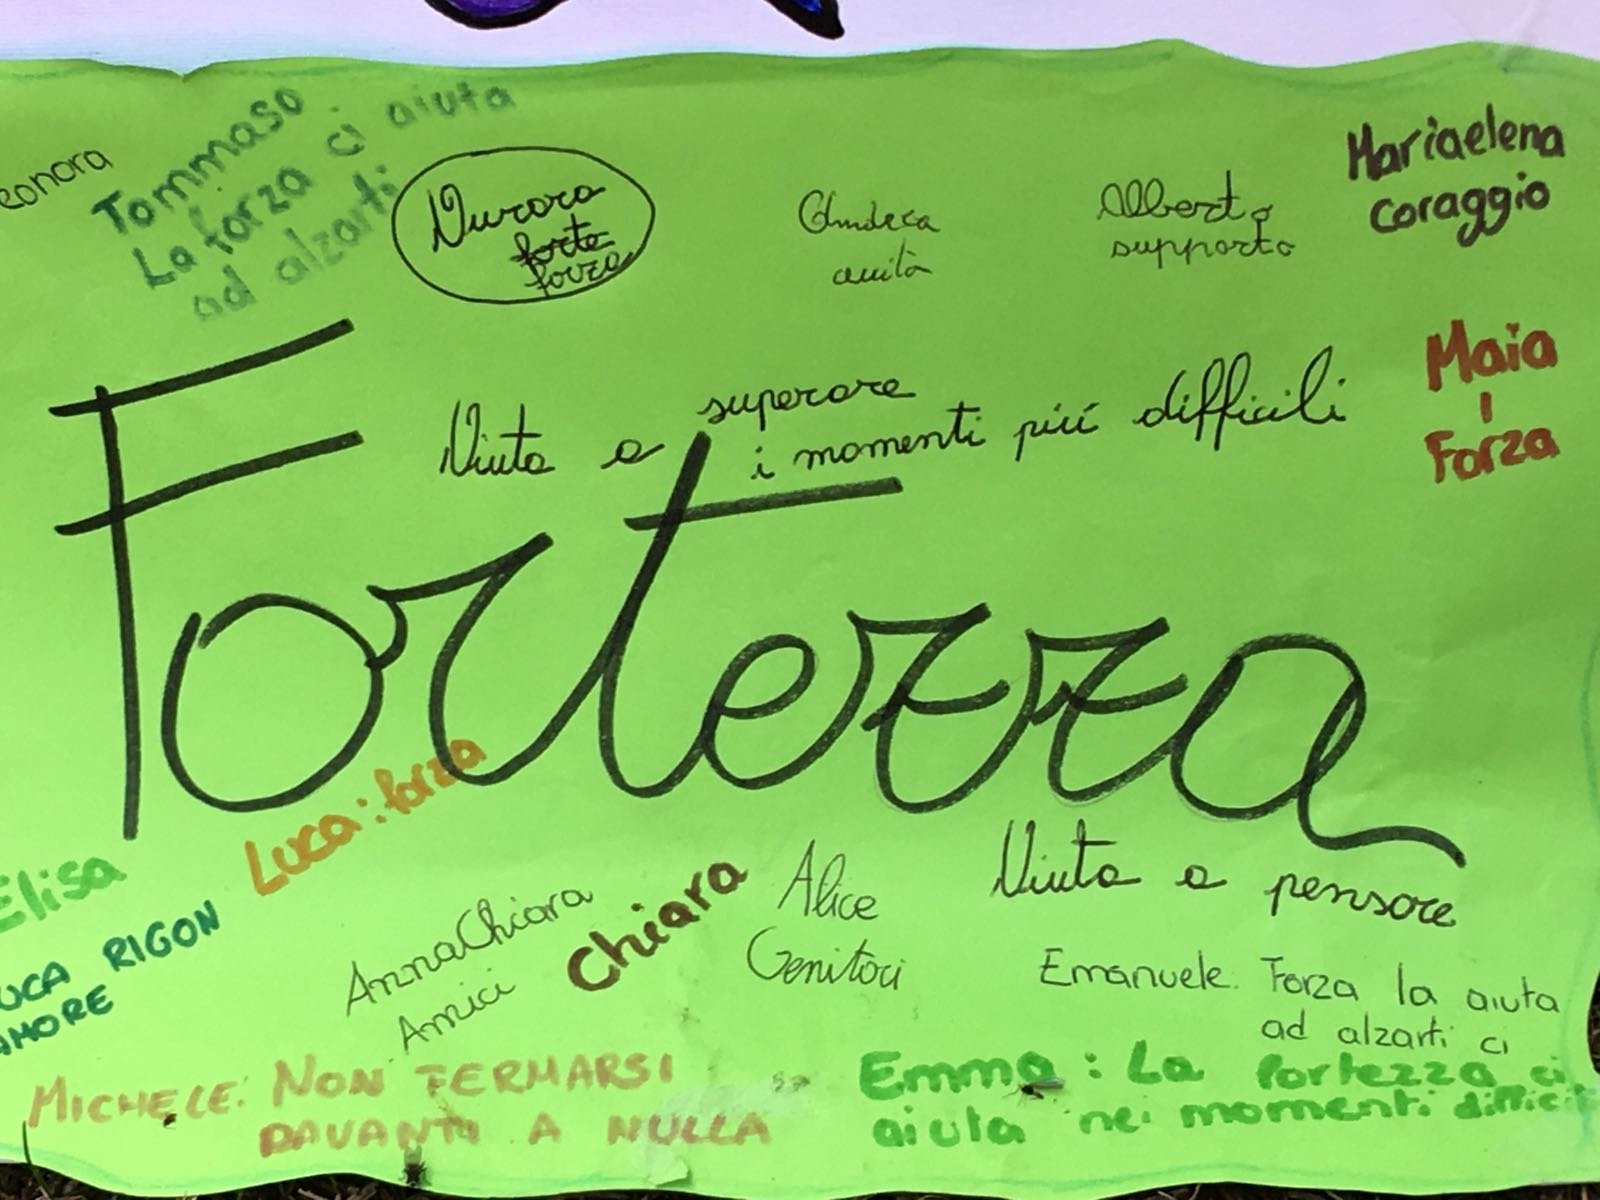 eonora
Tommaso
La forza ci aiuta
ad alzarti
Aurora
forte
forza
Andrea
unità
Alberto
supporto
Mariaelena
coraggio
Aiuta a superare
i momenti più difficili
Maia
Forza
Fortezza
Elisa
Luca: forza
UCA RIGON
AMORE
AnnaChiara
Amici
Chiara
Alice
Genitori
Aiuta a pensare
Emanuele: Forza la aiuta
ad alzarti ci
MICHELE: NON FERMARSI
DAVANTI A NULLA
Emma: La fortezza ci
aiuta nei momenti difficili